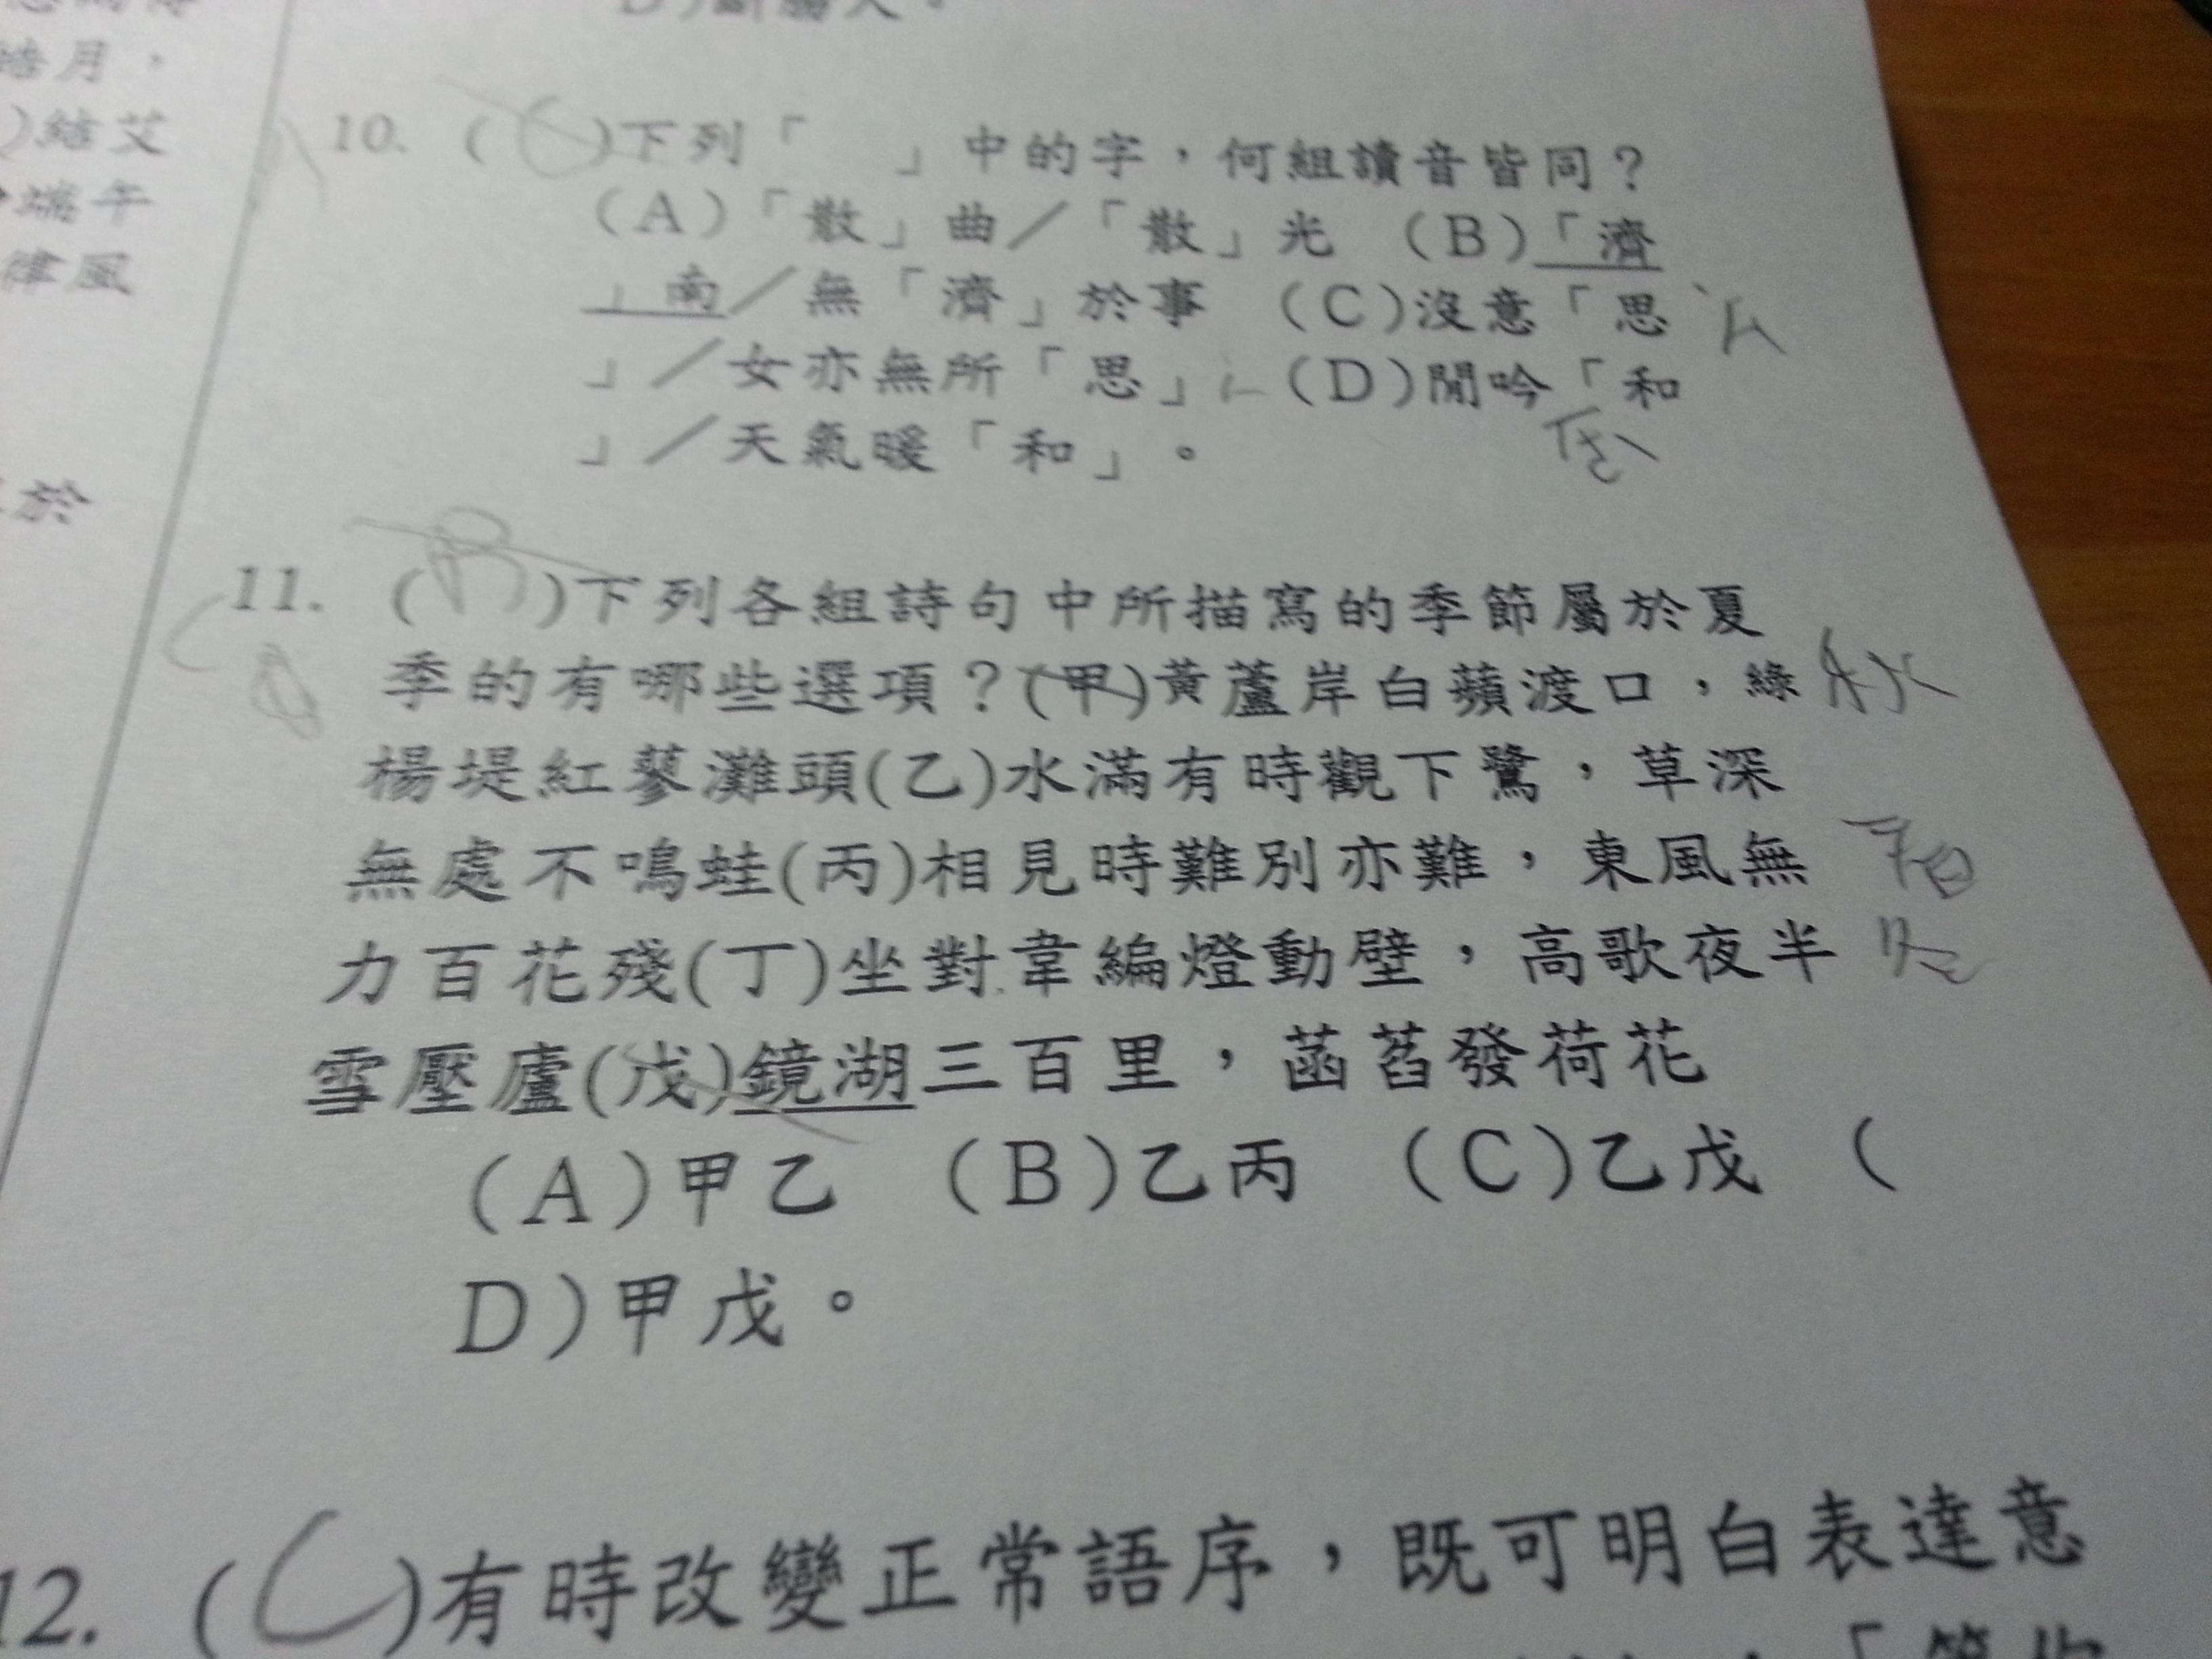 皓月，
)結艾
端午
律風
於
D)斷腸人。
10. (C)下列「　」中的字，何組讀音皆同？
(A)「散」曲／「散」光 (B)「濟
」南／無「濟」於事 (C)沒意「思
」／女亦無所「思」 (D)閒吟「和
」／天氣暖「和」。
11. (B)下列各組詩句中所描寫的季節屬於夏
C
季的有哪些選項？(甲)黃蘆岸白蘋渡口，綠 秋
楊堤紅蓼灘頭(乙)水滿有時觀下鷺，草深
無處不鳴蛙(丙)相見時難別亦難，東風無 春
力百花殘(丁)坐對韋編燈動壁，高歌夜半 冬
雪壓廬(戊)鏡湖三百里，菡萏發荷花
(A)甲乙 (B)乙丙 (C)乙戊 (
D)甲戊。
12. (C)有時改變正常語序，既可明白表達意